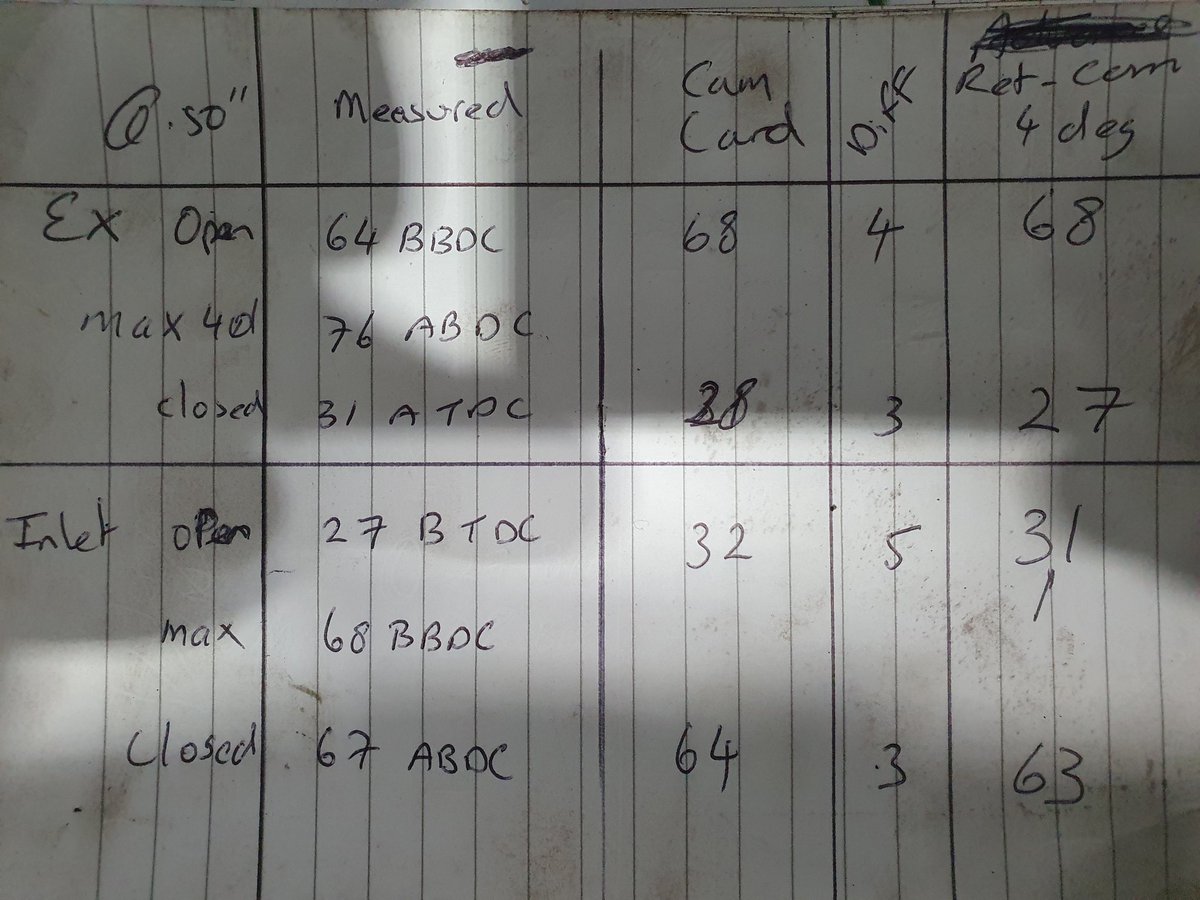 @.50" Measured Cam Card Diff Ret-Cam 4 deg
Ex Open 64 BBDC 68 4 68
Max 40d 76 ABDC
Closed 31 ATDC 28 3 27
Inlet Open 27 BTDC 32 5 31
Max 68 BBDC
Closed 67 ABDC 64 3 63